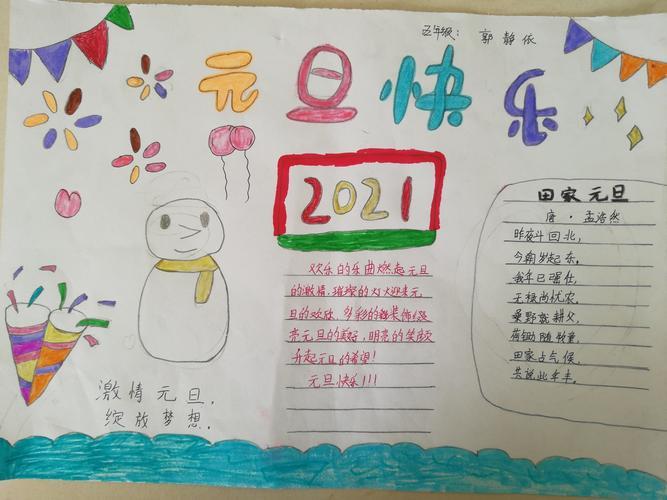 五年级: 郭静依
元旦快乐
2021
欢乐的乐曲燃起元旦
的激情,璀璨的灯火迎来元
旦的欢欣,多彩的装饰
亮元旦的美好,明亮的笑颜
升起元旦的希望!
元旦快乐!!!
田家元旦
唐·孟浩然
昨夜斗回北,
今朝岁起东。
我年已强仕,
无禄尚忧农。
桑野就耕父,
荷锄随牧童。
田家占气候,
共说此年丰。
激情元旦,
绽放梦想.